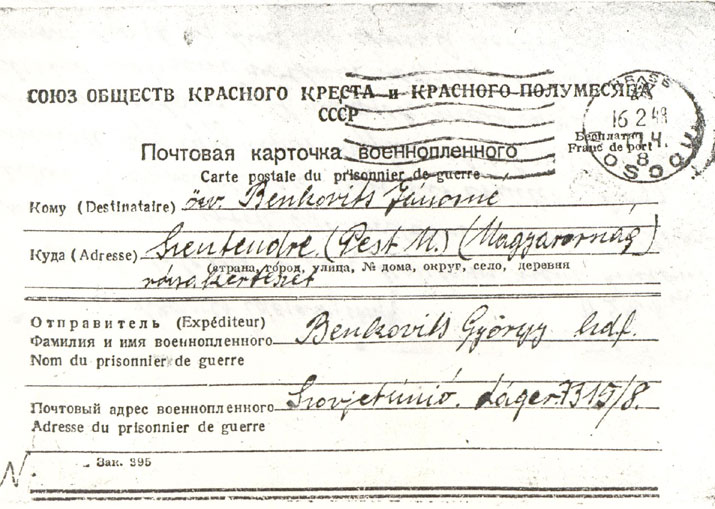 СОЮЗ ОБЩЕСТВ КРАСНОГО КРЕСТА и КРАСНОГО ПОЛУМЕСЯЦА
СССР
16 2 48
Бесплатно
Franc de port
14.
8
Почтовая карточка военнопленного
Carte postale du prisonnier de guerre
Кому (Destinataire) özv. Benkovits Jánosné
Куда (Adresse) Szentendre. (Pest M.) (Magyarország)
(страна, город, улица, № дома, округ, село, деревня
rózsakertészet
Отправитель (Expéditeur)
Фамилия и имя военнопленного Benkovits György hdf.
Nom du prisonnier de guerre
Почтовый адрес военнопленного Szovjetúnió. Láger. 7315/8.
Adresse du prisonnier de guerre
Зак. 395